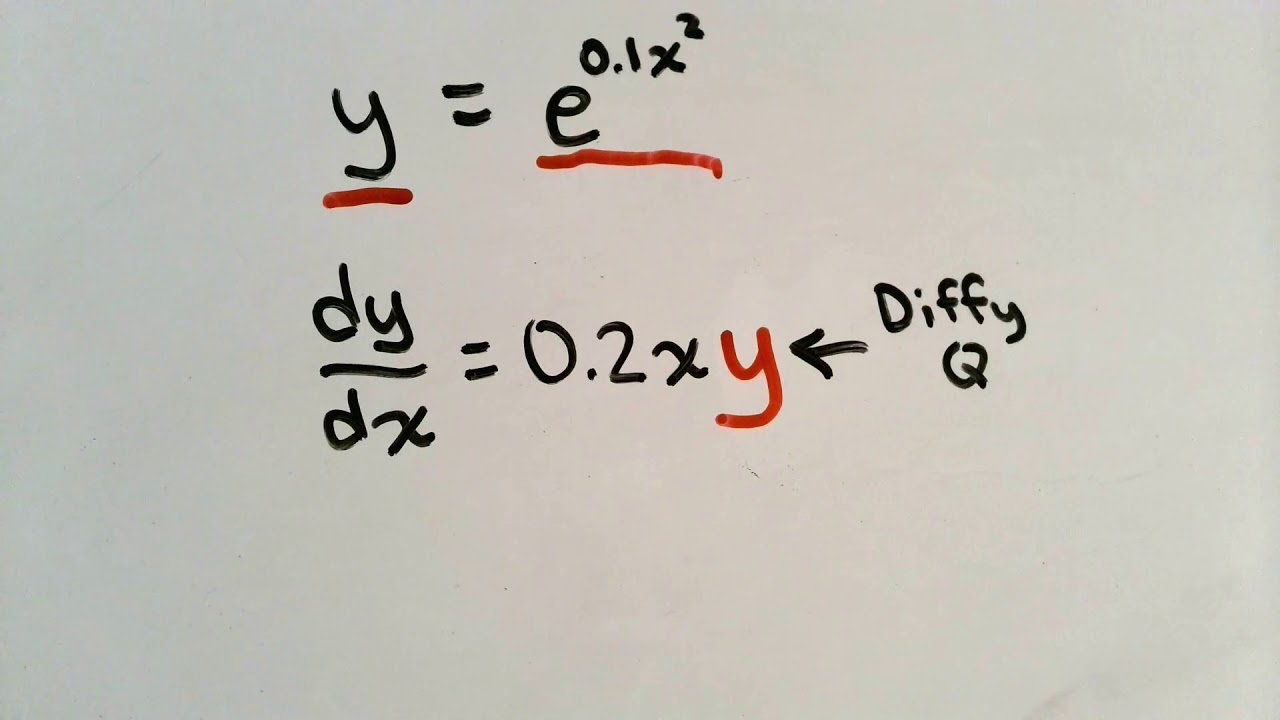 y = e^{0.1x^2}
dy/dx = 0.2xy ← Diffy
Q